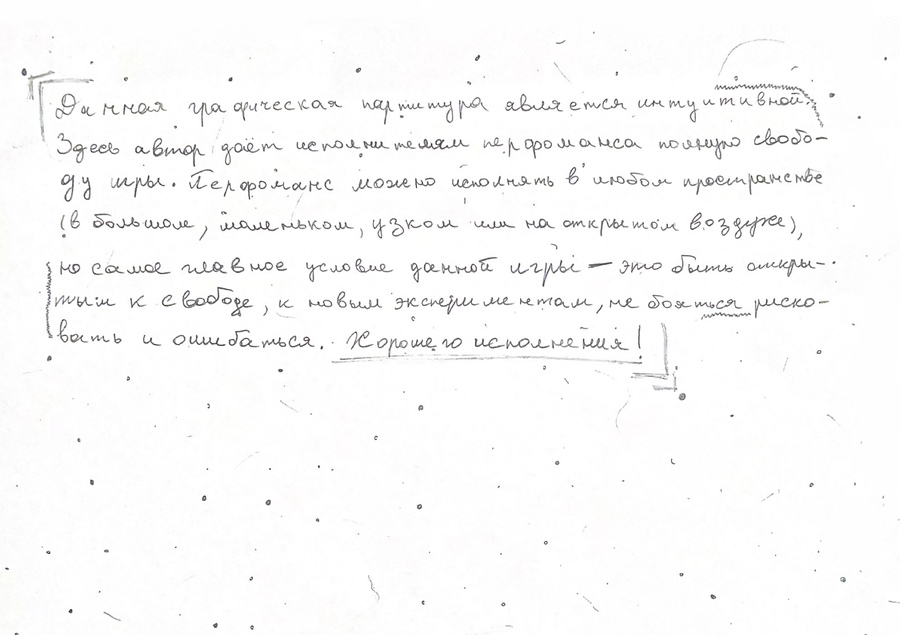 Данная графическая партитура является интуитивной.
Здесь автор даёт исполнителям перфоманса полную свобо-
ду игры. Перфоманс можно исполнять в любом пространстве
(в большом, маленьком, узком или на открытом воздухе),
но самое главное условие данной игры — это быть откры-
тым к свободе, к новым экспериментам, не бояться риско-
вать и ошибаться. Хорошего исполнения!